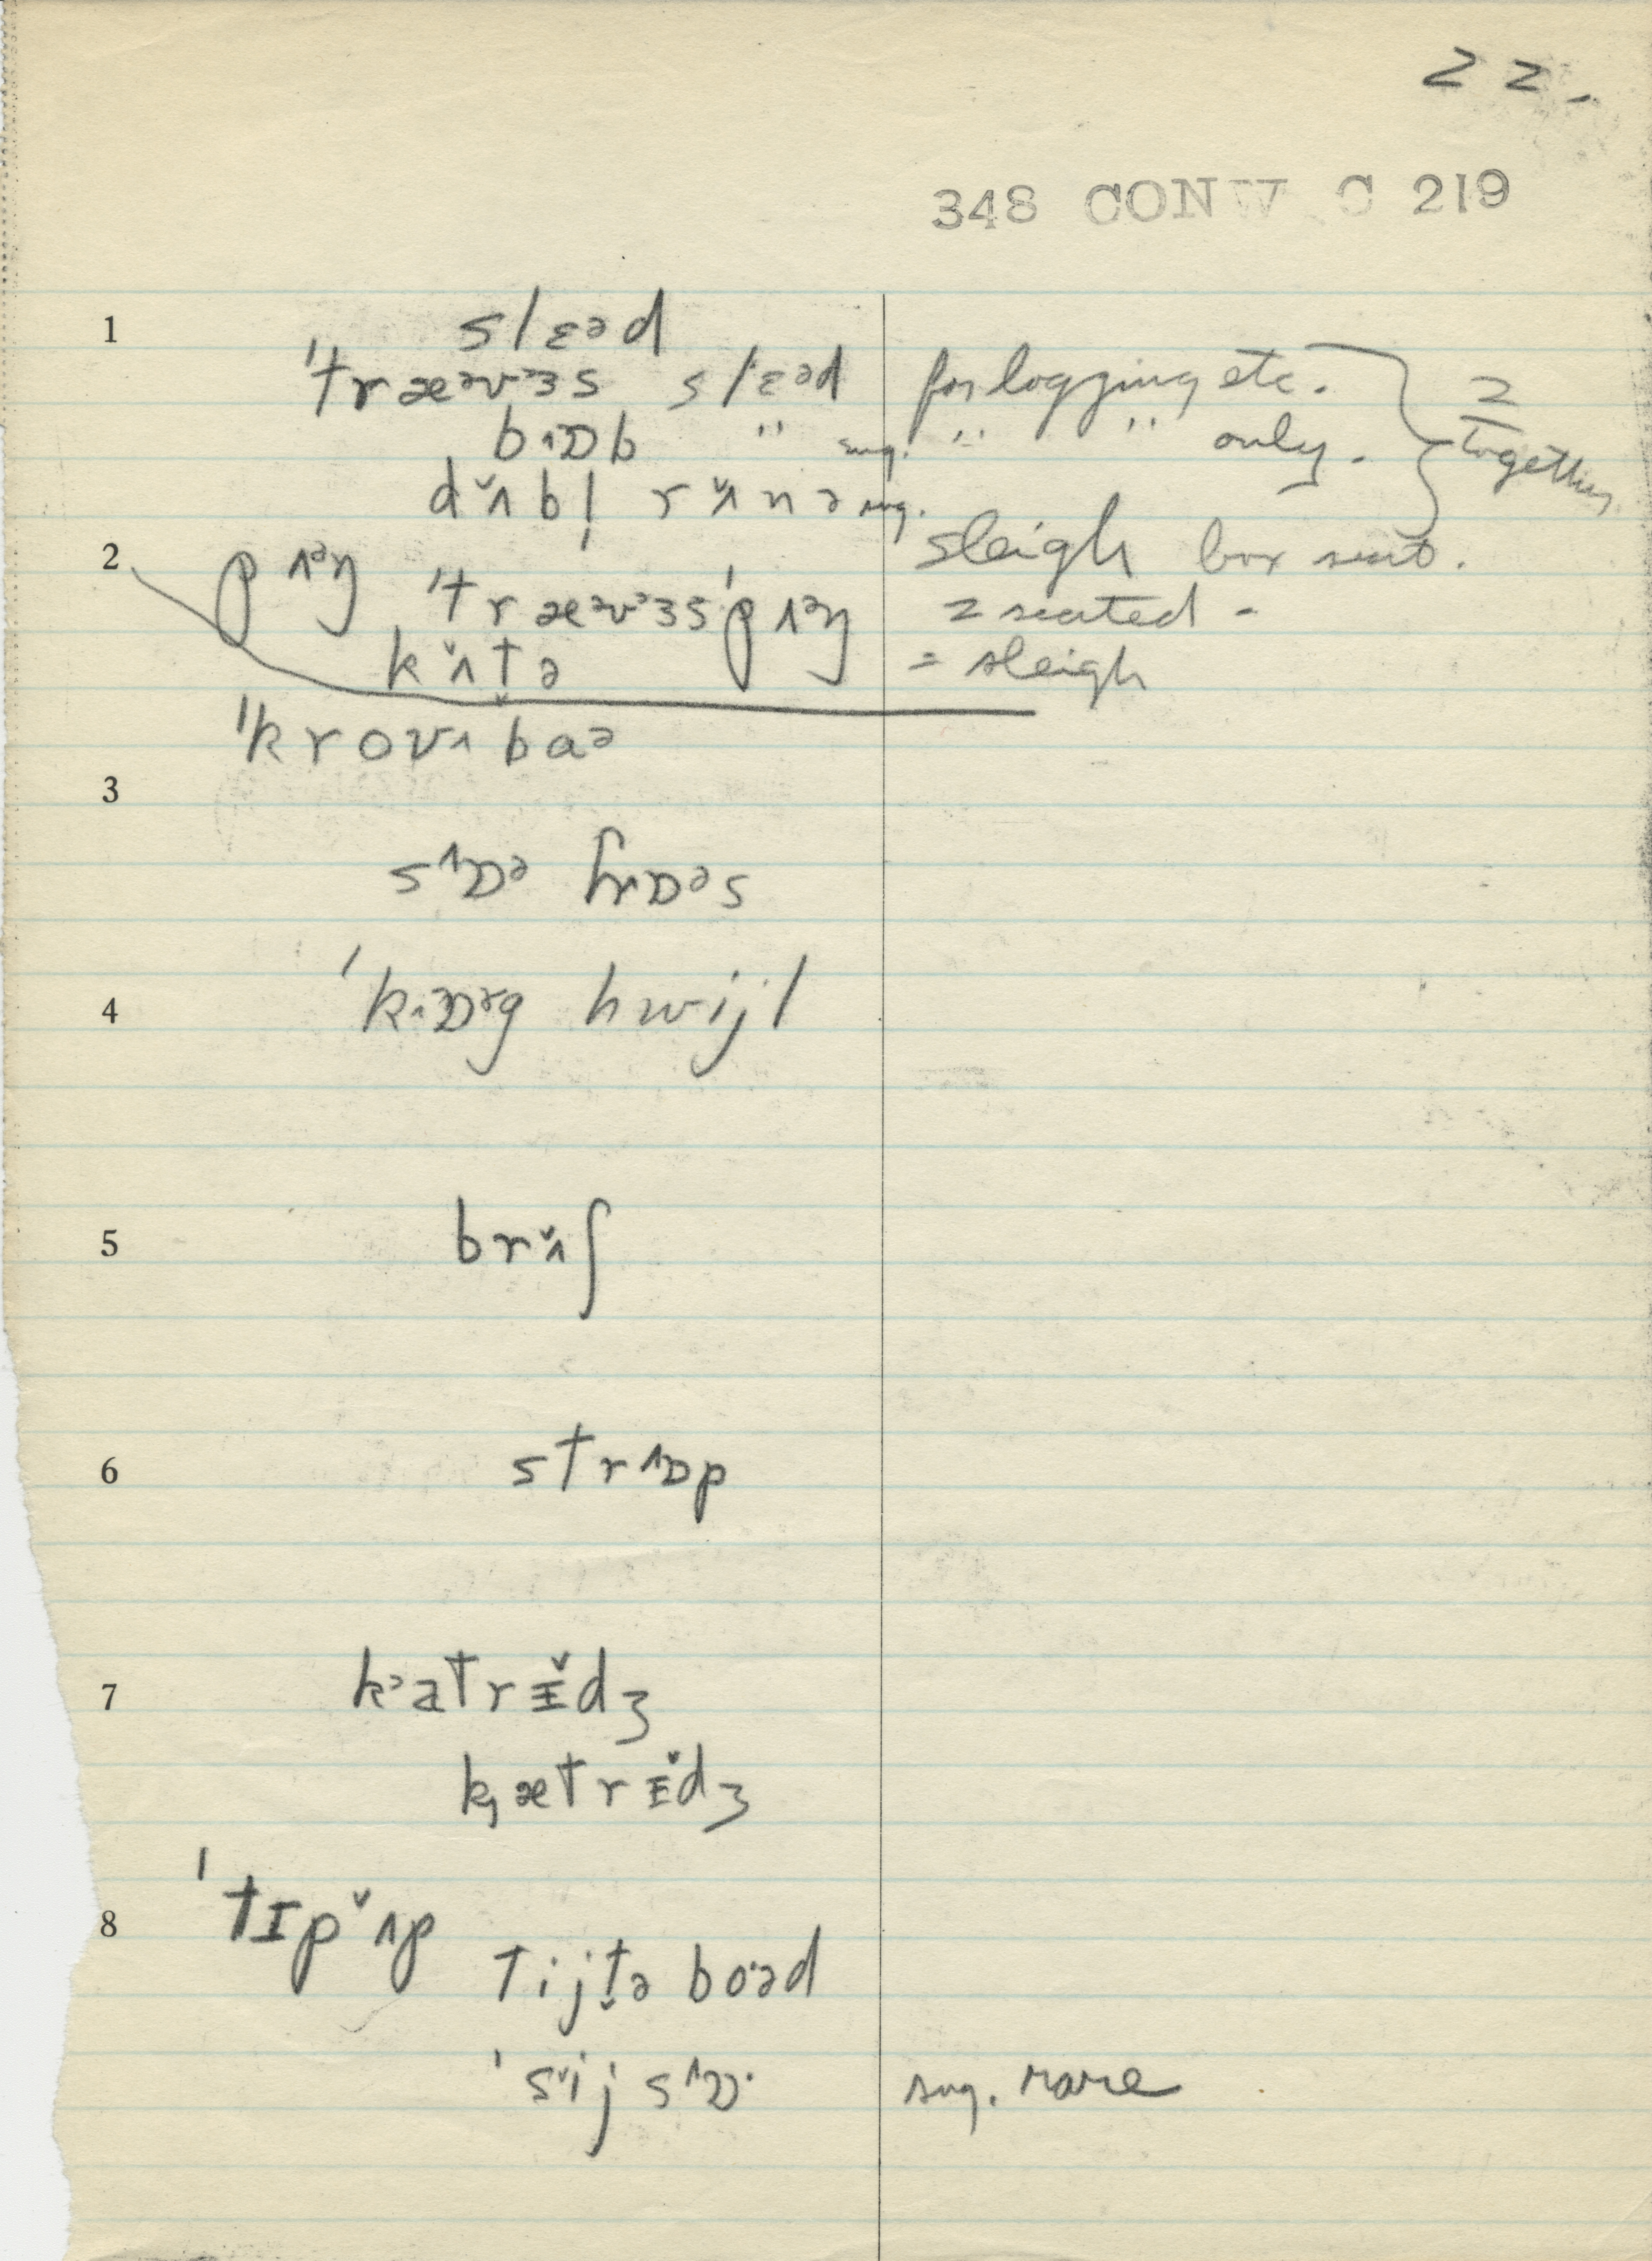 22.
348 CONW C 219
1 slɛəd
'træᵊvᵊɜs slɛəd for logging etc.
bʌɒb " sug. " " only. 2 together
dʌ̆bl̩ rʌ̆nə sug.
2 pʌᵊŋ 'træᵊvᵊɜs'pʌᵊŋ sleigh box seat.
2 seated -
kʌ̆t̬ə = sleigh
'krovʌbaə
3
sʌɒə hʌɒəs
4 'kʌɒᵊg hwijl
5 brʌ̆ʃ
6 strʌɒp
7 kᵊatrɪ̆dʒ
kætrɪ̆dʒ
8 'tɪpʌ̆p
tijt̬ə boəd
'sij sʌɒ· sug. rare